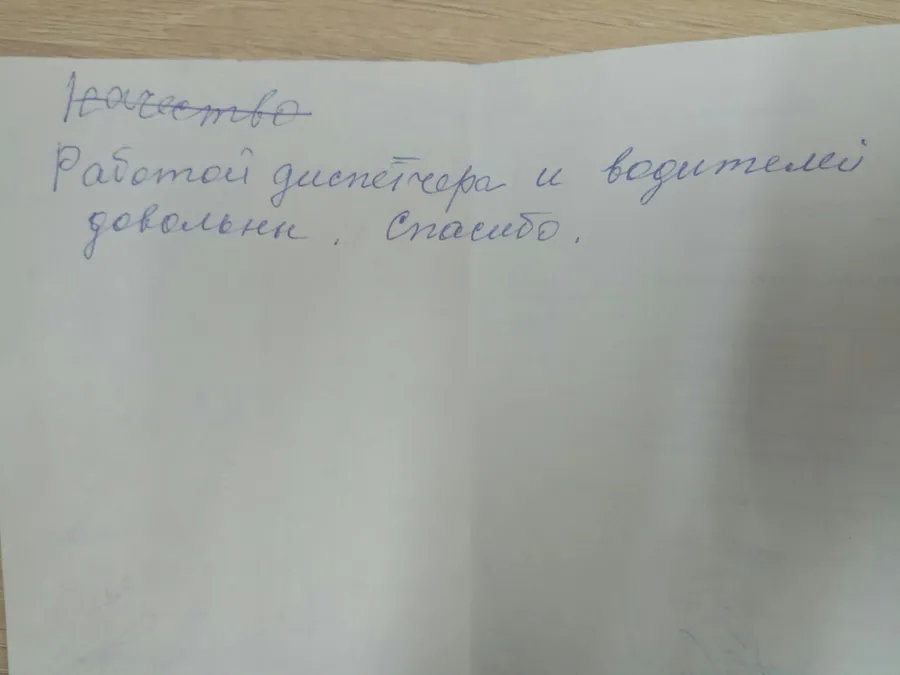 качество
Работой диспетчера и водителей
довольны. Спасибо.